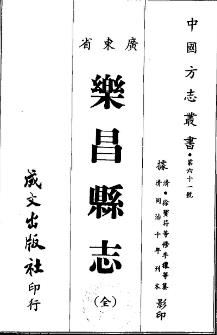 中國方志叢書·第六十一號
據清·徐寶符等修李穟等纂
清同治十年刊本影印
廣東省
樂昌縣志
(全)
成文出版社印行